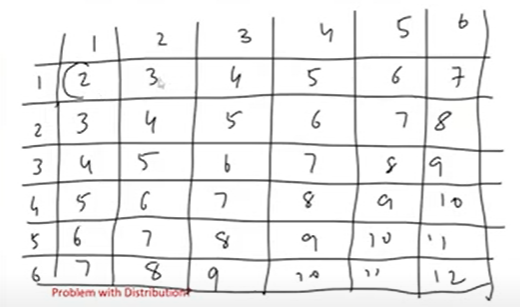 1 2 3 4 5 6
1 2 3 4 5 6 7
2 3 4 5 6 7 8
3 4 5 6 7 8 9
4 5 6 7 8 9 10
5 6 7 8 9 10 11
6 7 8 9 10 11 12
Problem with Distribution?